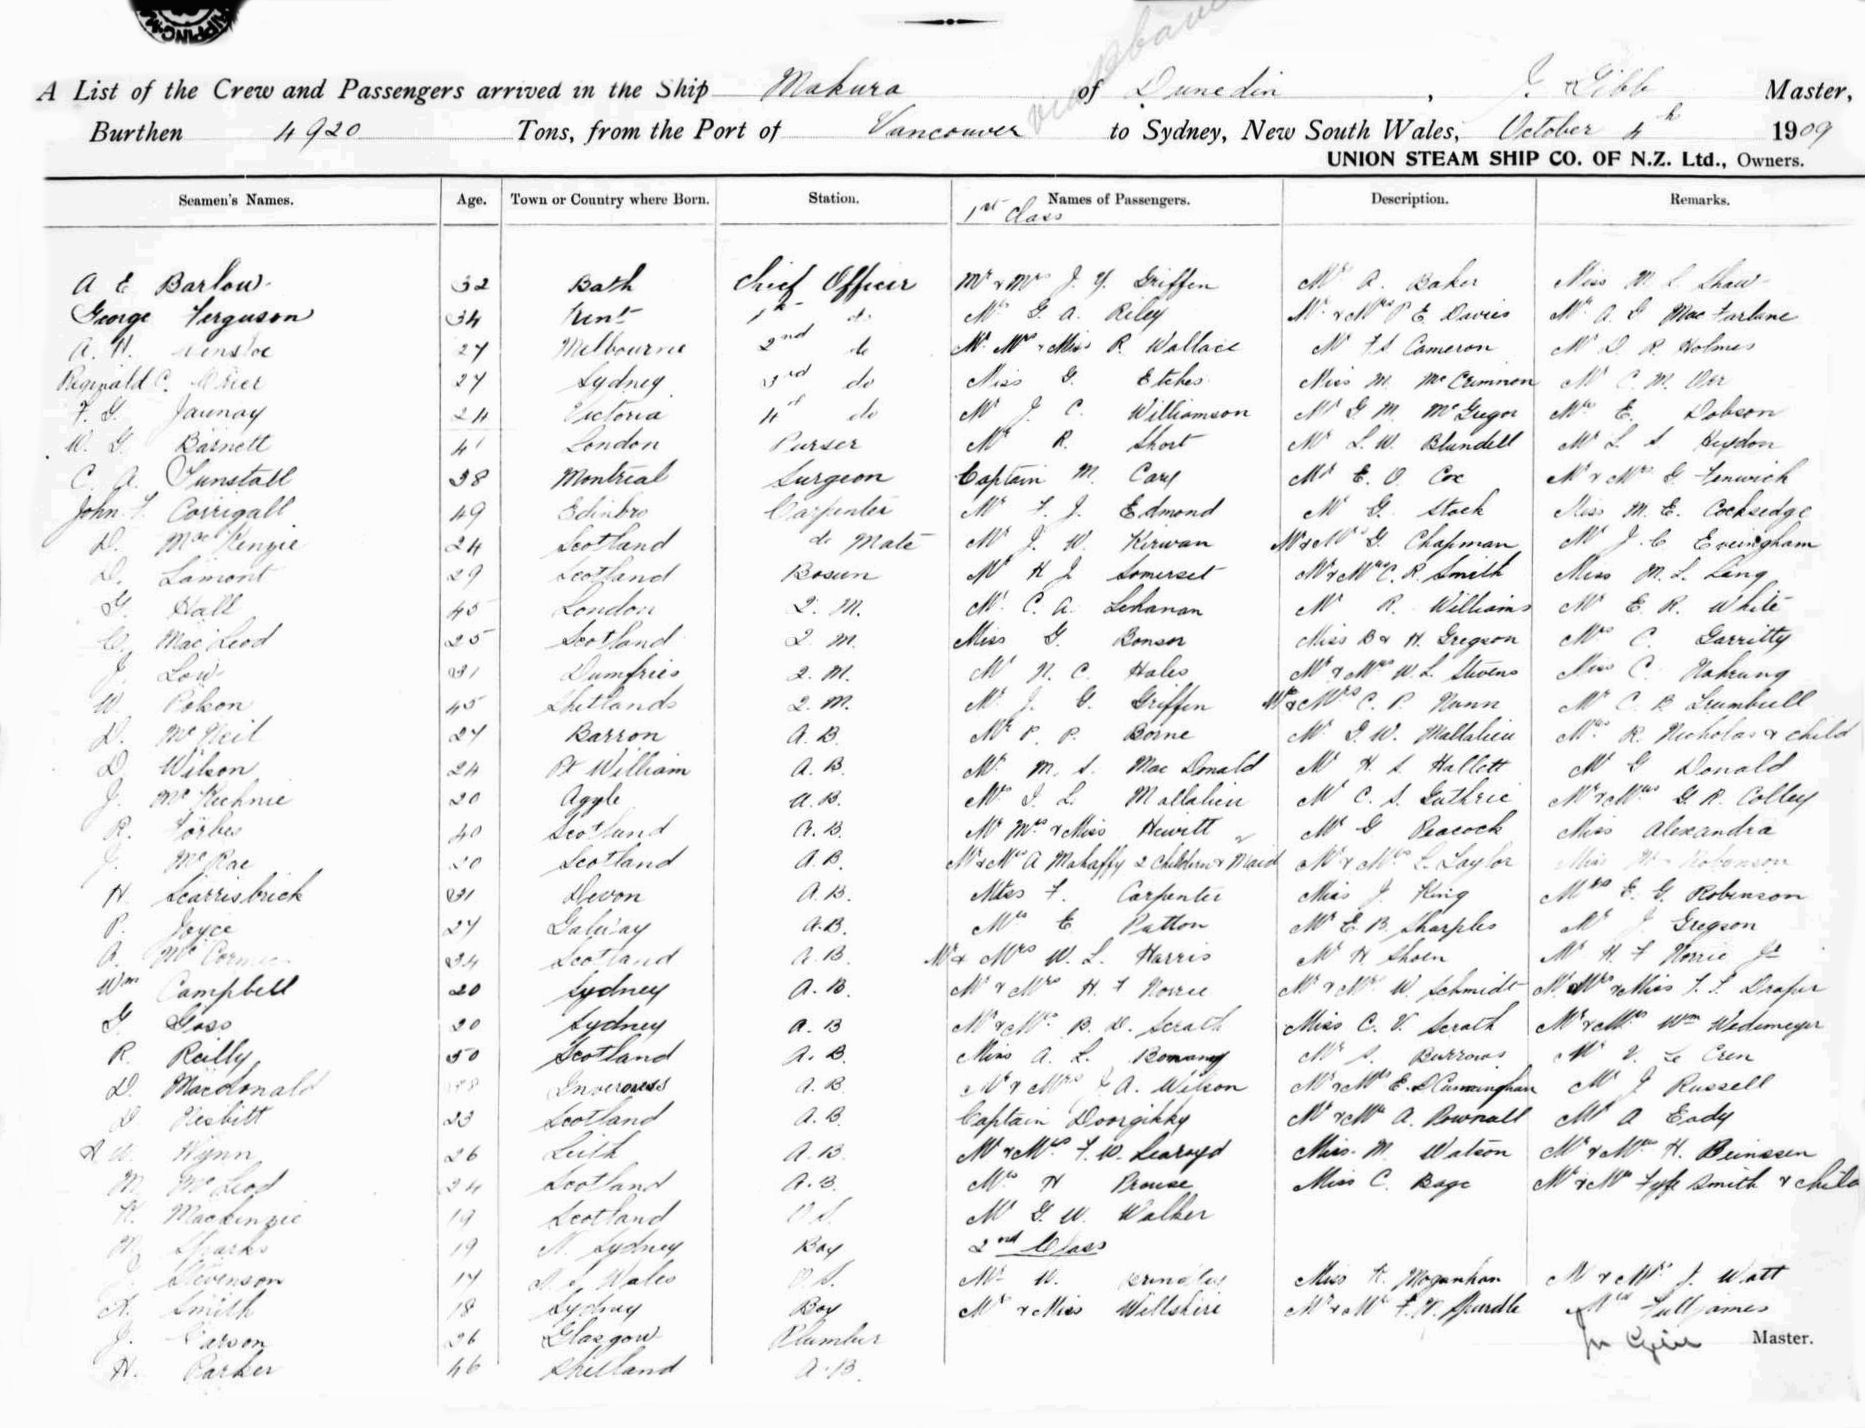 A List of the Crew and Passengers arrived in the Ship Makura of Dunedin, J. Gibb Master,
Burthen 4920 Tons, from the Port of Vancouver to Sydney, New South Wales, October 4th 1909
UNION STEAM SHIP CO. OF N.Z. Ltd., Owners.
Seamen's Names. Age. Town or Country where Born. Station. Names of Passengers. Description. Remarks.
1st Class
A E Barlow 32 Bath Chief Officer Mr & Mrs J. Y. Griffen Mr A. Baker Miss M L Shaw
George Ferguson 34 Kent 1st do Mr G. A. Riley Mr & Mrs P E. Davies Mr A. G Mac Farlane
A. H. 27 Melbourne 2nd do Mr Mrs & Miss R. Wallace Mr Cameron Mr D. R. Holmes
Reginald C. 27 Sydney 3rd do Miss G. Etches Miss M. McCrimmon Mr C. M. Orr
F. G. Jaunay 24 Victoria 4th do Mr J. C. Williamson Mr G M. McGregor Mrs E. Dobson
W. G. Barnett 41 London Purser Mr R. Short Mr L. W. Blundell Mr L. S. Heydon
C. A. Tunstall 38 Montreal Surgeon Captain M. Cary Mr E. O. Cox Mr & Mrs G. Fenwick
John F. Corrigall 49 Edinbro Carpenter Mr F. J. Edmond Mr G. Stock Miss M. E. Cocksedge
D. MacKenzie 24 Scotland do Mate Mr J. W. Kirwan Mr & Mrs G. Chapman Mr J. C Eveingham
D. Lamont 29 Scotland Bosun Mr H J. Somerset Mr & Mrs C. R. Smith Miss M. L. Lang
G. Hall 45 London Q. M. Mr C. A. Lehanan Mr R. Williams Mr E. R. White
MacLeod 25 Scotland Q. M. Miss G. Bonsor Miss B & H. Gregson Mrs C. Garritty
J. Low 31 Dumfries Q. M. Mr N. C. Hales Mr & Mrs W. L. Stevens Miss C.
W. Robson 45 Shetlands Q. M. Mr J. G. Griffen Mr & Mrs C. P. Nunn Mr C. B Trumbull
D. McNeil 27 Barron A. B. Mr P. P. Borne Mr I. W. Mallalieu Mrs R. Nicholas & child
D Wilson 24 Ft William A. B. Mr M. S. MacDonald Mr H. S. Hallett Mr G Donald
J. McKechnie 20 A. B. Mrs I. L. Mallalieu Mr C. S. Guthrie Mr & Mrs G. R. Colley
R. Forbes 40 Scotland A. B. Mr Mrs & Miss Hewitt Mr G Peacock Miss Alexandra
J. McRae 20 Scotland A. B. Mr & Mrs A Mahaffy 2 Children & Maid Mr & Mrs L. Taylor Miss Robinson
H. Scarrisbrick 31 Devon A. B. Miss F. Carpenter Miss J. King Mrs E. G. Robinson
P. Joyce 27 Galway A. B. Mrs E Patton Mr E. B. Sharples Mr J. Gregson
A. McCormic 34 Scotland A. B. Mr & Mrs W. L. Harris Mr H Shoen Mr H. F Norrie Jr
Wm Campbell 20 Sydney A. B. Mr & Mrs H. F Norrie Mr & Mrs W. Schmidt Mr Mrs & Miss F. F. Draper
G. Goss 20 Sydney A. B Mr & Mrs B. D. Scrath Miss C. V. Scrath Mr & Mrs Wm Wedemeyer
R. Reilly 50 Scotland A. B. Miss A. L. Bonamy Mr S. Burrows Mr V. Le Cren
D. Macdonald 38 Inverness A. B. Mr & Mrs J. A. Wilson Mr & Mrs E. D Cunningham Mr J Russell
D Nesbitt 23 Scotland A. B. Captain Mr & Mrs A. Pownall Mr A Eady
Hynn 26 Leith A. B. Mr & Mrs F. W. Learoyd Miss M Watson Mr & Mrs H. Beinssen
M. McLeod 24 Scotland A. B. Mrs H Prouse Miss C. Bage Mr & Mrs Fyfe Smith & child
K. Mackenzie 19 Scotland O. S. Mr G. W. Walker
M. Sparks 19 N. Sydney Boy 2nd Class
J. Stevenson 17 N. S. Wales O. S. Mr W. Miss K. Moganhan Mr & Mrs J. Watt
A. Smith 18 Sydney Boy Mr & Miss Willshire Mr & Mrs F. V. Spurdle Fulljames
J. Carson 26 Glasgow Plumber Master.
H. Parker 46 Shetland A. B.